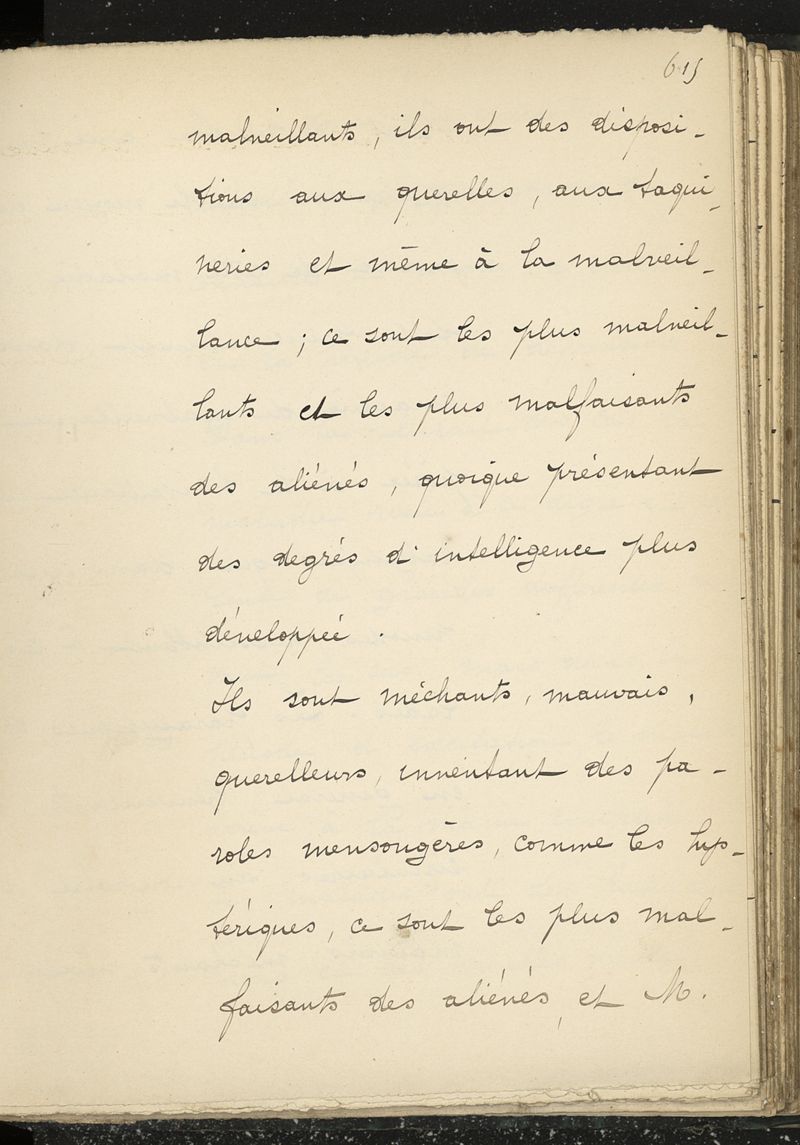 615
malveillants, ils ont des disposi-
tions aux querelles, aux taqui-
neries et même à la malveil-
lance ; ce sont les plus malveil-
lants et les plus malfaisants
des aliénés, quoique présentant
des degrés d'intelligence plus
développée.
Ils sont méchants, mauvais,
querelleurs, inventant des pa-
roles mensongères, comme les hys-
tériques, ce sont les plus mal-
faisants des aliénés, et M.